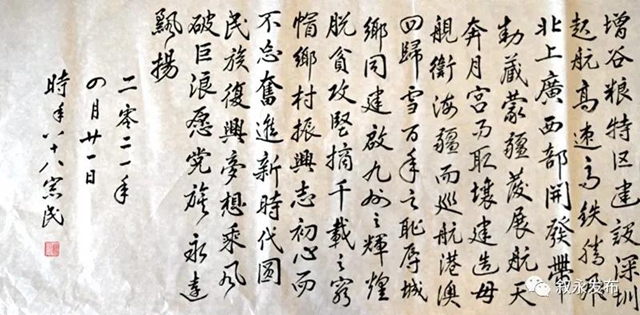 增谷粮特区建設深圳
起航高速高铁騰飛
北上廣西部開發帶
動藏蒙疆發展航天
奔月宮而取壤建造母
艦衛海疆而巡航港澳
回歸雪百年之恥辱城
鄉同建啟九州之輝煌
脱貧攻堅摘千載之窮
帽鄉村振興志初心而
不忘奮進新時代圓
民族復興夢想乘風
破巨浪愿党旗永遠
飄揚
二零二一年
四月廿一日
時年八十八宗民
叙永发布